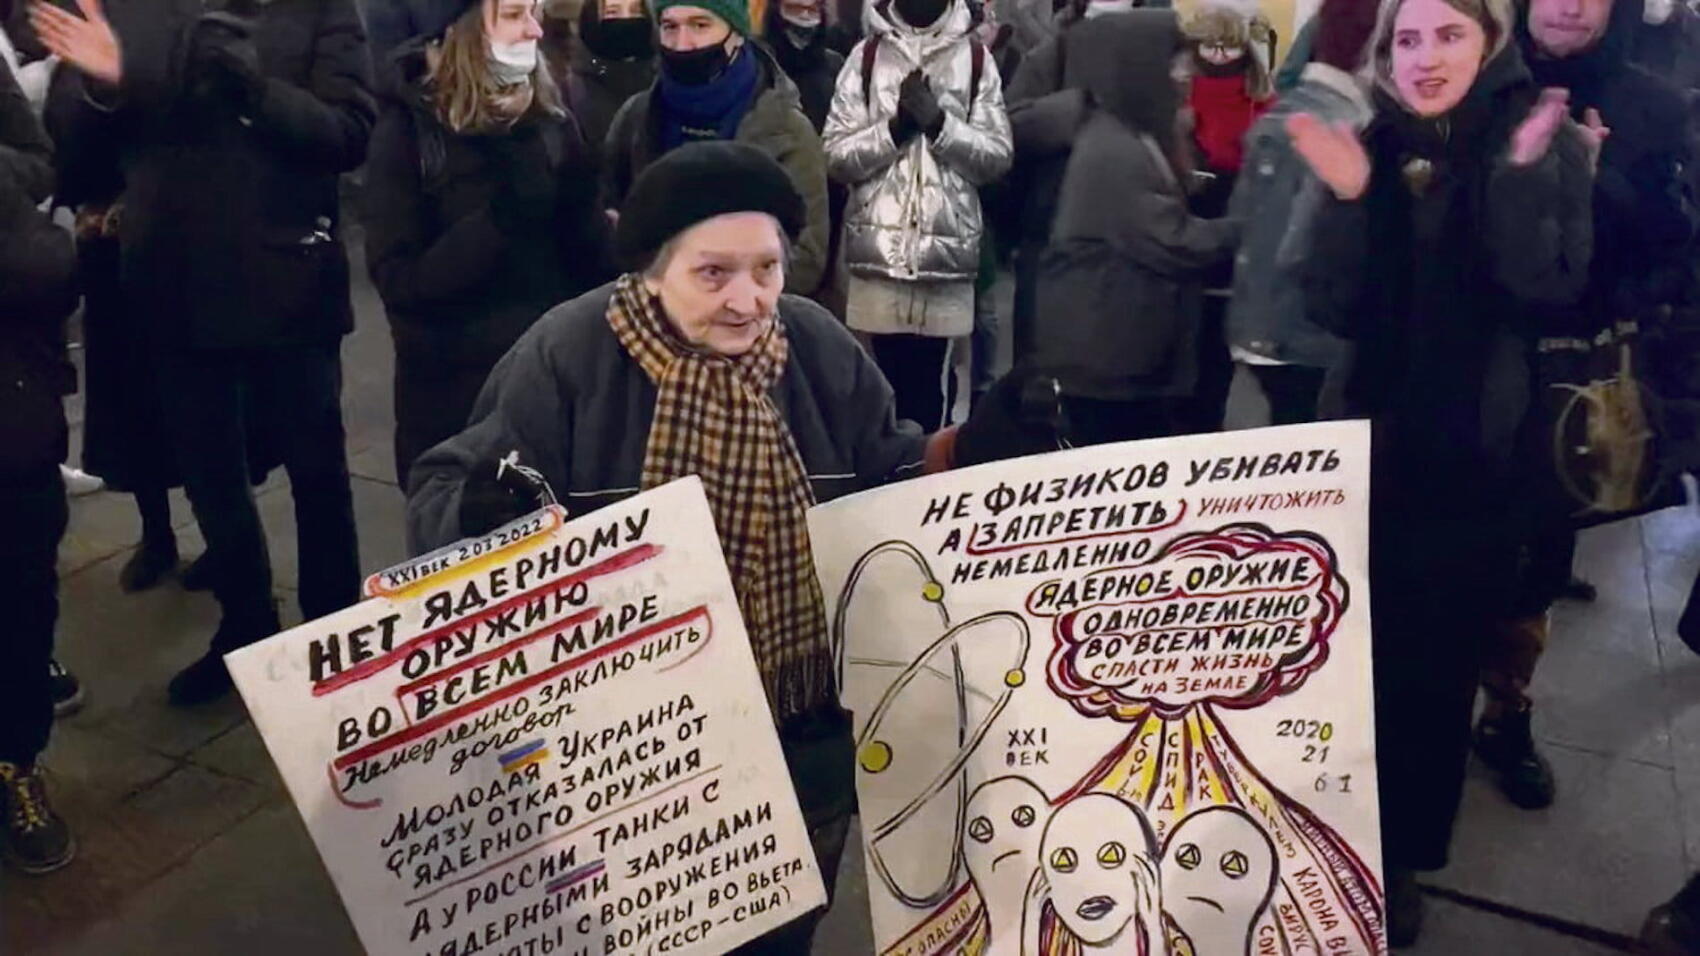 XXI ВЕК 2 03 2022
НЕТ ЯДЕРНОМУ
ОРУЖИЮ
ВО ВСЕМ МИРЕ
Немедленно ЗАКЛЮЧИТЬ
договор
МОЛОДАЯ УКРАИНА
СРАЗУ ОТКАЗАЛАСЬ ОТ
ЯДЕРНОГО ОРУЖИЯ
А У РОССИИ ТАНКИ С
ЯДЕРНЫМИ ЗАРЯДАМИ
С ВООРУЖЕНИЯ
ВОЙНЫ ВО ВЬЕТА.
(СССР-США)
НЕ ФИЗИКОВ УБИВАТЬ
А ЗАПРЕТИТЬ УНИЧТОЖИТЬ
НЕМЕДЛЕННО
ЯДЕРНОЕ ОРУЖИЕ
ОДНОВРЕМЕННО
ВО ВСЕМ МИРЕ
СПАСТИ ЖИЗНЬ
НА ЗЕМЛЕ
XXI
ВЕК
2020
21
6 1
СПИД
РАК
КАРОНА
ВИРУС